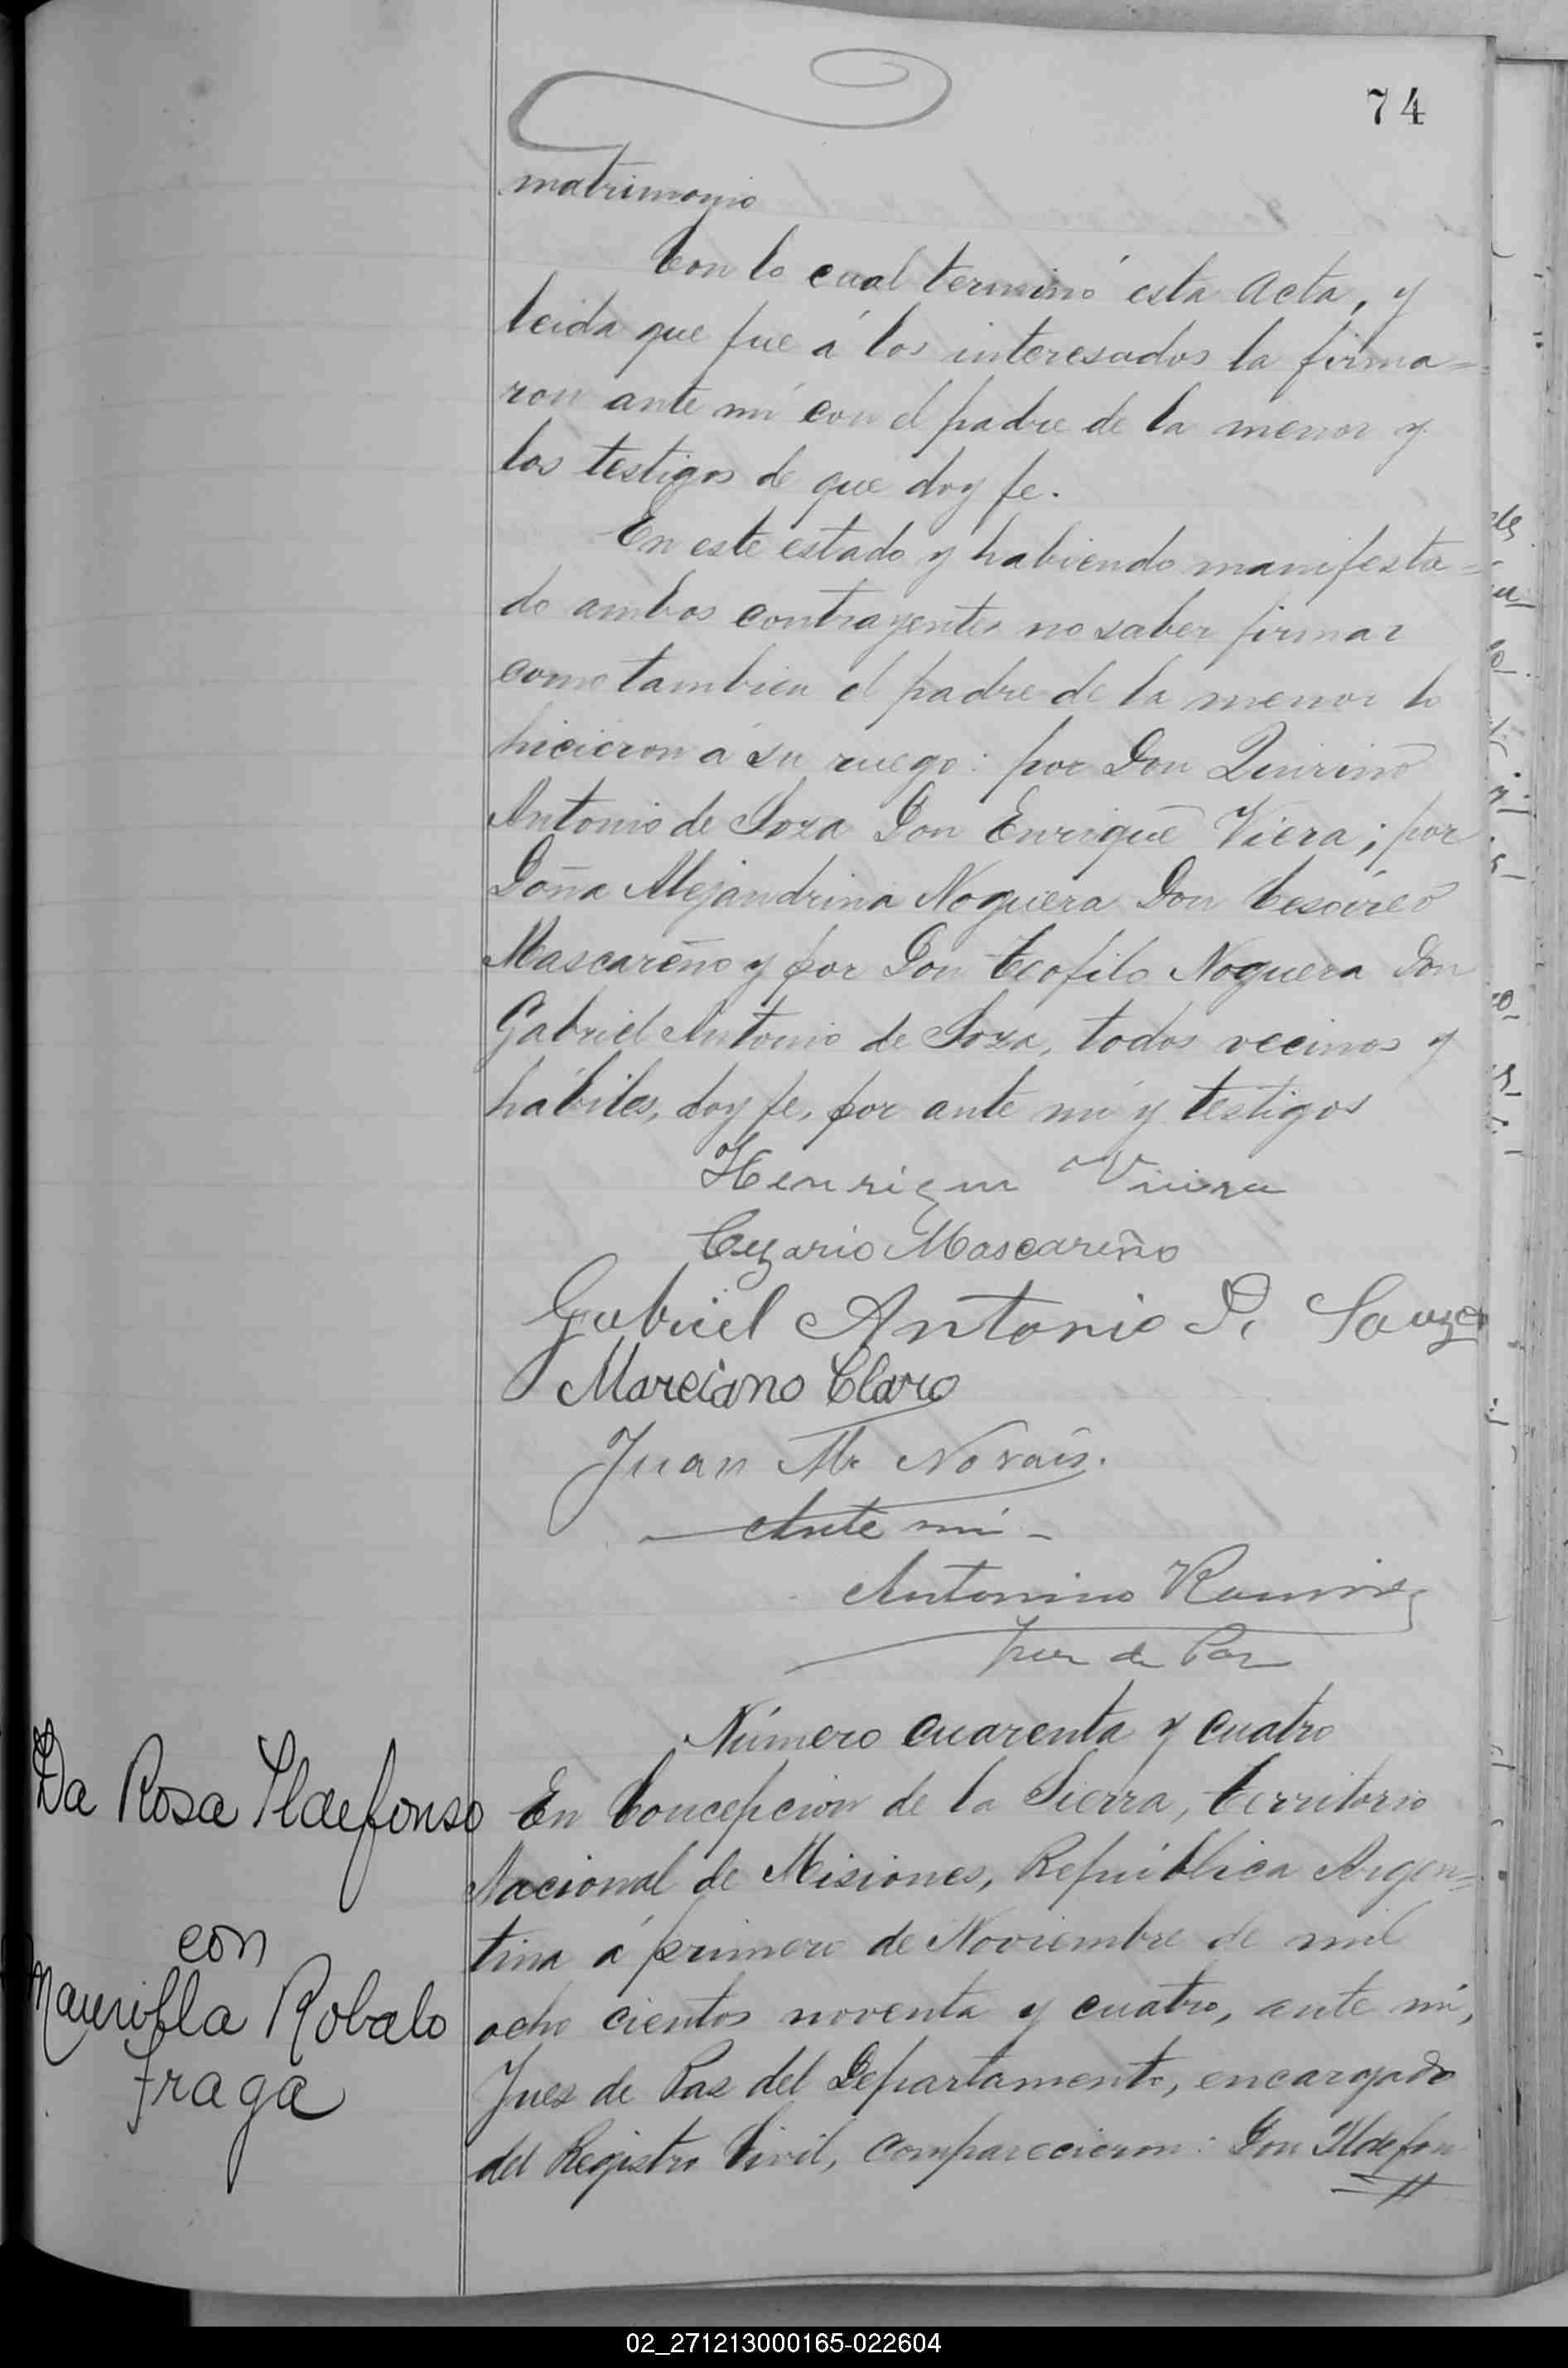 74
matrimonio
Con lo cual terminó esta Acta, y
leida que fue á los interesados la firma=
ron ante mi con el padre de la menor y
los testigos de que doy fe.
En este estado y habiendo manifesta=
do ambos contrayentes no saber firmar
como tambien el padre de la menor lo
hicieron á su ruego: por Don Quirino
Antonio de Soza Don Enrique Viera; por
Doña Alejandrina Noguera Don Cesáreo
Mascareño y por Don Teofilo Noguera Don
Gabriel Antonio de Soza, todos vecinos y
hábiles, doy fe, por ante mi y testigos
Henrique Vieira
Cezario Mascareño
Gabriel Antonio D. Souza
Marciano Claro
Juan M. Novais.
Ante mi
Antonino Ramirez
Juez de Paz
Número cuarenta y cuatro
Da Rosa Ildefonso
con
Maurilla Robalo
Fraga
En Concepcion de la Sierra, Territorio
Nacional de Misiones, República Argen=
tina á primero de Noviembre de mil
ocho cientos noventa y cuatro, ante mi,
Juez de Paz del Departamento, encargado
del Registro Civil, comparecieron: Don Ildefon
02_271213000165-022604